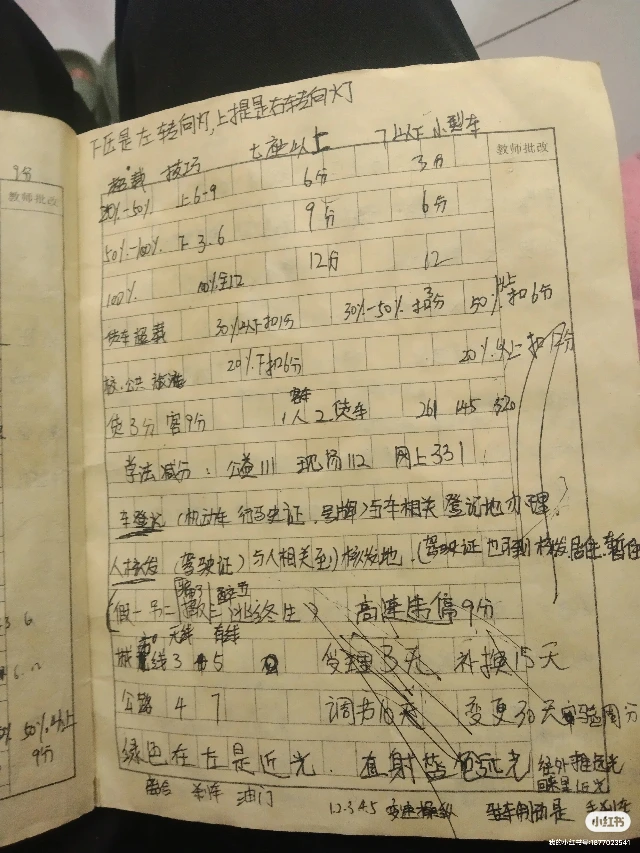 9分
教师批改
下压是左转向灯,上提是右转向灯
教师批改
超载 技巧 七座以上 7以下 小型车
20%-50% 上6-9 6分 3分
50%-100% 下3.6 9分 6分
100% 100%全12 12分 12
货车超载 30%以下扣1分 30%-50% 扣3分 50%以上扣6分
校.公共 旅游 20%下扣6分 20%以上扣12分
货3分 客9分 1人 客车 2货车 261 145 320
学法减分: 公益111 现场112 网上331
车登记 (机动车 行驶证.号牌)与车相关 登记地办理
人核发 (驾驶证)与人相关至)核发地.(驾驶证也可到核发.居住.暂住
骗3 醉五
假一吊二撤三 逃终生 高速 停9分
无线 有线
城 线3 5 受理3天 补换15天
公路 4 7 调节10天 变更30天 实验周分
绿色在左是近光. 直射蓝色远光 往外推远光
回来是近光
离合 刹车 油门 1.2.3.4.5 变速操纵 驻车制动是 手刹车
3 6
6.12
50%以上
9分
小红书
我的小红书号:1877023541